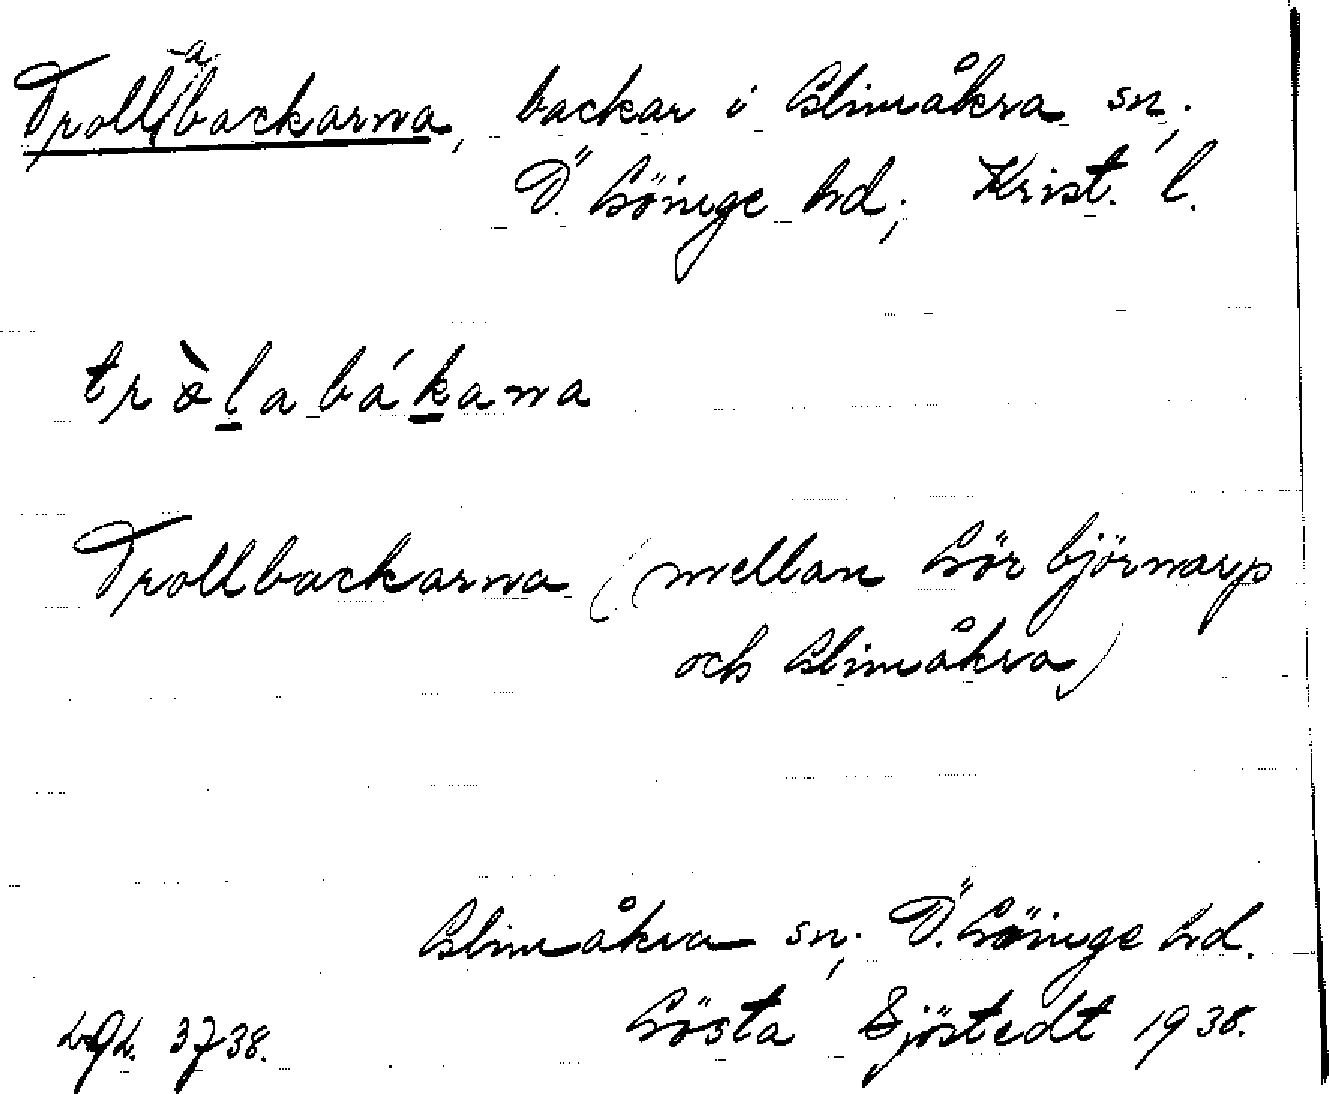 Troll(a)backarna, backar i Glimåkra sn;
Ö. Göinge hd; Krist. l.
tròlabákana
Trollbackarna (mellan Görbjörnarp
och Glimåkra)
Glimåkra sn; Ö. Göinge hd.
Gösta Sjöstedt 1938.
3738.